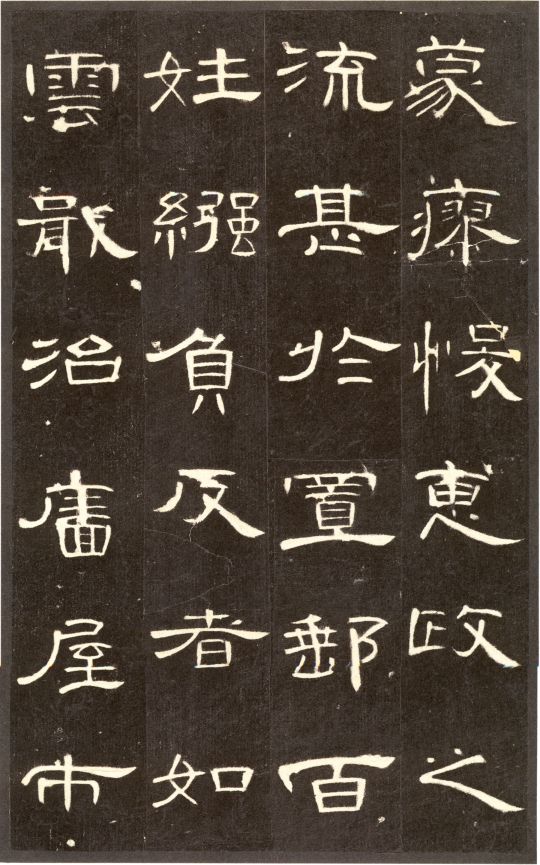 蒙瘳悛惠政之
流甚於置郵百
姓繦負反者如
雲戢治廧屋市